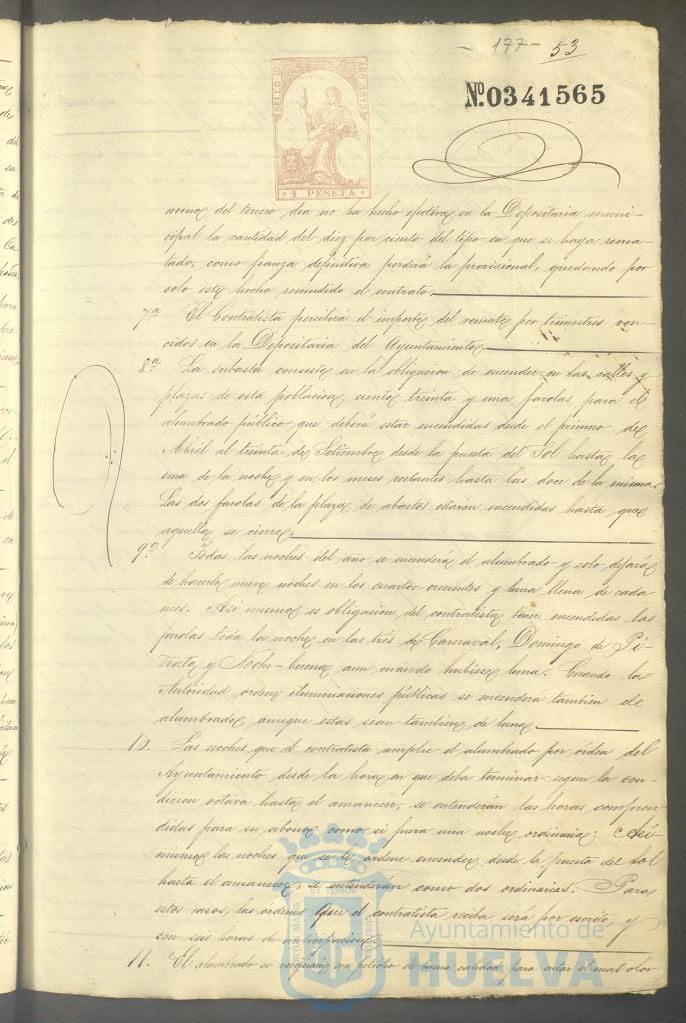 177- 53
SELLO 10º AÑO 1873
Nº.0341565
1 PESETA
mino del tercero dia no ha hecho efectiva en la Depositaria muni-
cipal la cantidad del diez por ciento del tipo en que se haya rema-
tado, como fianza definitiva perderá la provisional, quedando por
solo este hecho rescindido el contrato.
7ª El Contratista percibirá el importe del remate por trimestres ven-
cidos en la Depositaria del Ayuntamiento.
8ª La subasta consiste en la obligacion de encender en las calles y
plazas de esta poblacion ciento treinta y una farolas para el
alumbrado público que deberá estar encendidas desde el primero de
Abril al treinta de Setiembre desde la puesta del Sol hasta la
una de la noche y en los meses restantes hasta las doce de la misma.
Las dos farolas de la plaza de abastos estarán encendidas hasta que
aquella se cierre.
9ª Todas las noches del año se encenderá el alumbrado y solo dejará
de hacerlo nueve noches en los cuartos crecientes y luna llena de cada
mes. Asi mismo es obligacion del contratista tener encendidas las
farolas toda la noche en las tres de Carnaval, Domingo de Pi-
ñata y Noche-buena aun cuando hubiese luna. Cuando la
Autoridad ordene iluminaciones públicas se encenderá tambien el
alumbrado, aunque estas sean tambien de luna.
10. Las noches que el contratista amplie el alumbrado por órden del
Ayuntamiento desde la hora en que deba terminar segun la con-
dicion octava hasta el amanecer, se entenderán las horas compren-
didas para su abono como si fuera una noche ordinaria: Asi
mismo las noches que se le ordene encender desde la puesta del Sol
hasta el amanecer, se entenderán como dos ordinarias. Para
estos casos, las órdenes que el contratista reciba será por escrito, y
con seis horas de anticipacion.
11. El alumbrado se verificará con petroleo de buena calidad para evitar el mal olor
Ayuntamiento de
HUELVA